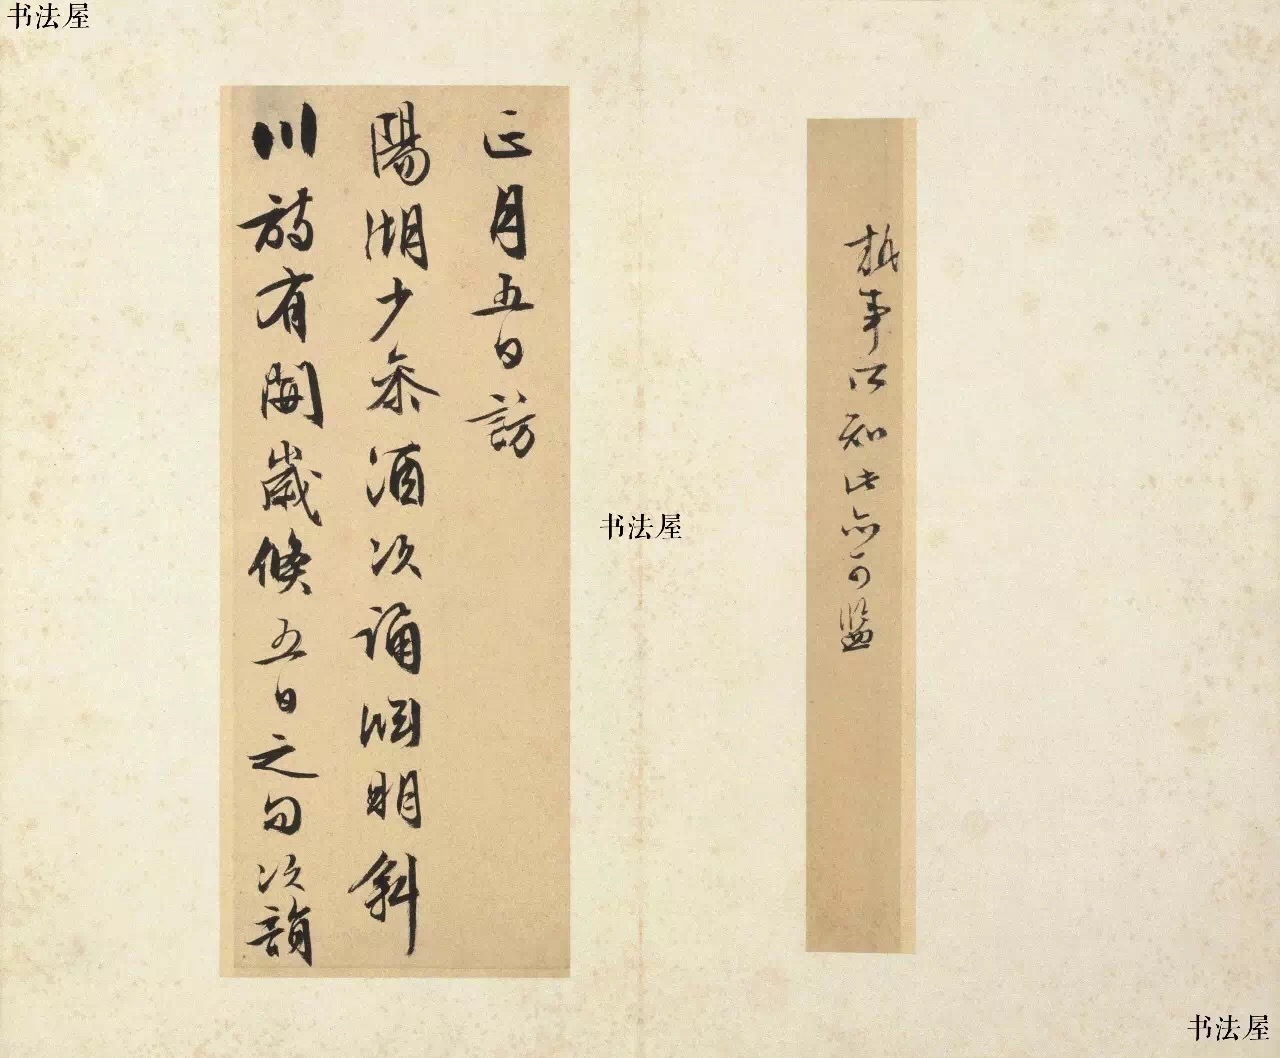 书法屋
於事以知此亦可鑒
正月五日訪
陽湖少參酒次誦淵明斜
川詩有開歲倏五日之句次韻
书法屋
书法屋